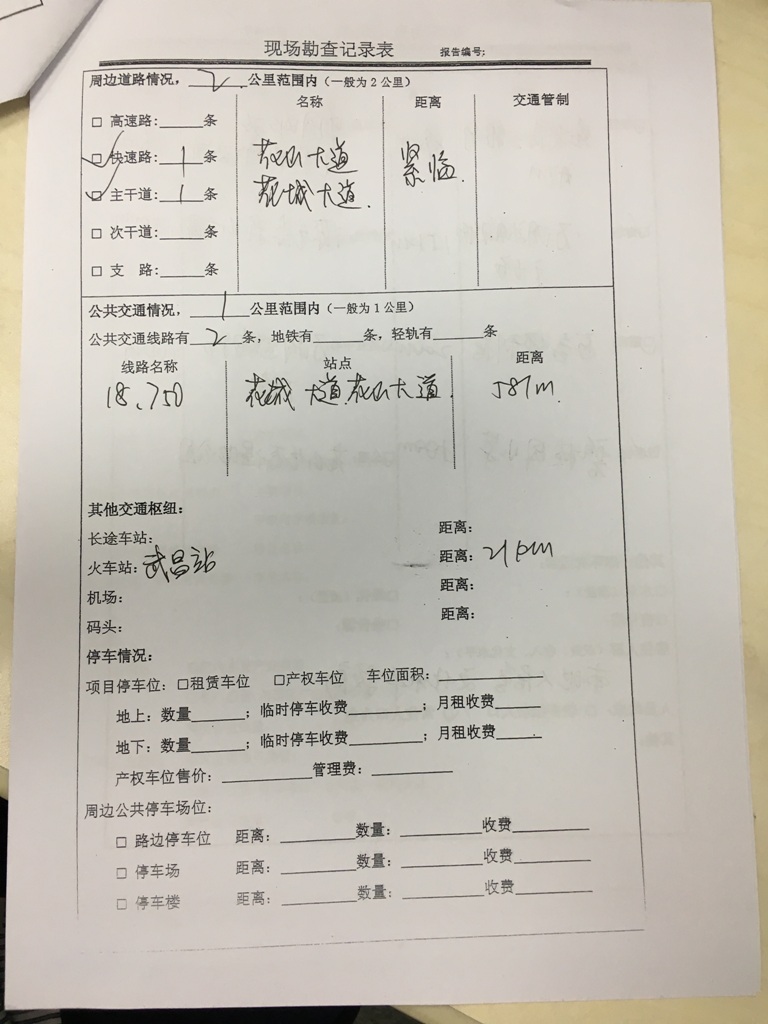 现场勘查记录表 报告编号:
周边道路情况, 2 公里范围内（一般为2公里）
名称 距离 交通管制
□ 高速路:____条
☑ 快速路: 1 条 花山大道 紧临
☑ 主干道: 1 条 花城大道
□ 次干道:____条
□ 支 路:____条
公共交通情况, 1 公里范围内（一般为1公里）
公共交通线路有 2 条，地铁有____条，轻轨有____条
线路名称 站点 距离
18、750 花城大道花山大道 587m
其他交通枢纽：
长途车站: 距离：
火车站: 武昌站 距离: 21km
机场： 距离：
码头： 距离：
停车情况：
项目停车位：□租赁车位 □产权车位 车位面积：____
地上：数量____；临时停车收费____；月租收费____
地下：数量____；临时停车收费____；月租收费____
产权车位售价：____管理费：____
周边公共停车场位：
□ 路边停车位 距离：____数量：____收费____
□ 停车场 距离：____数量：____收费____
□ 停车楼 距离：____数量：____收费____